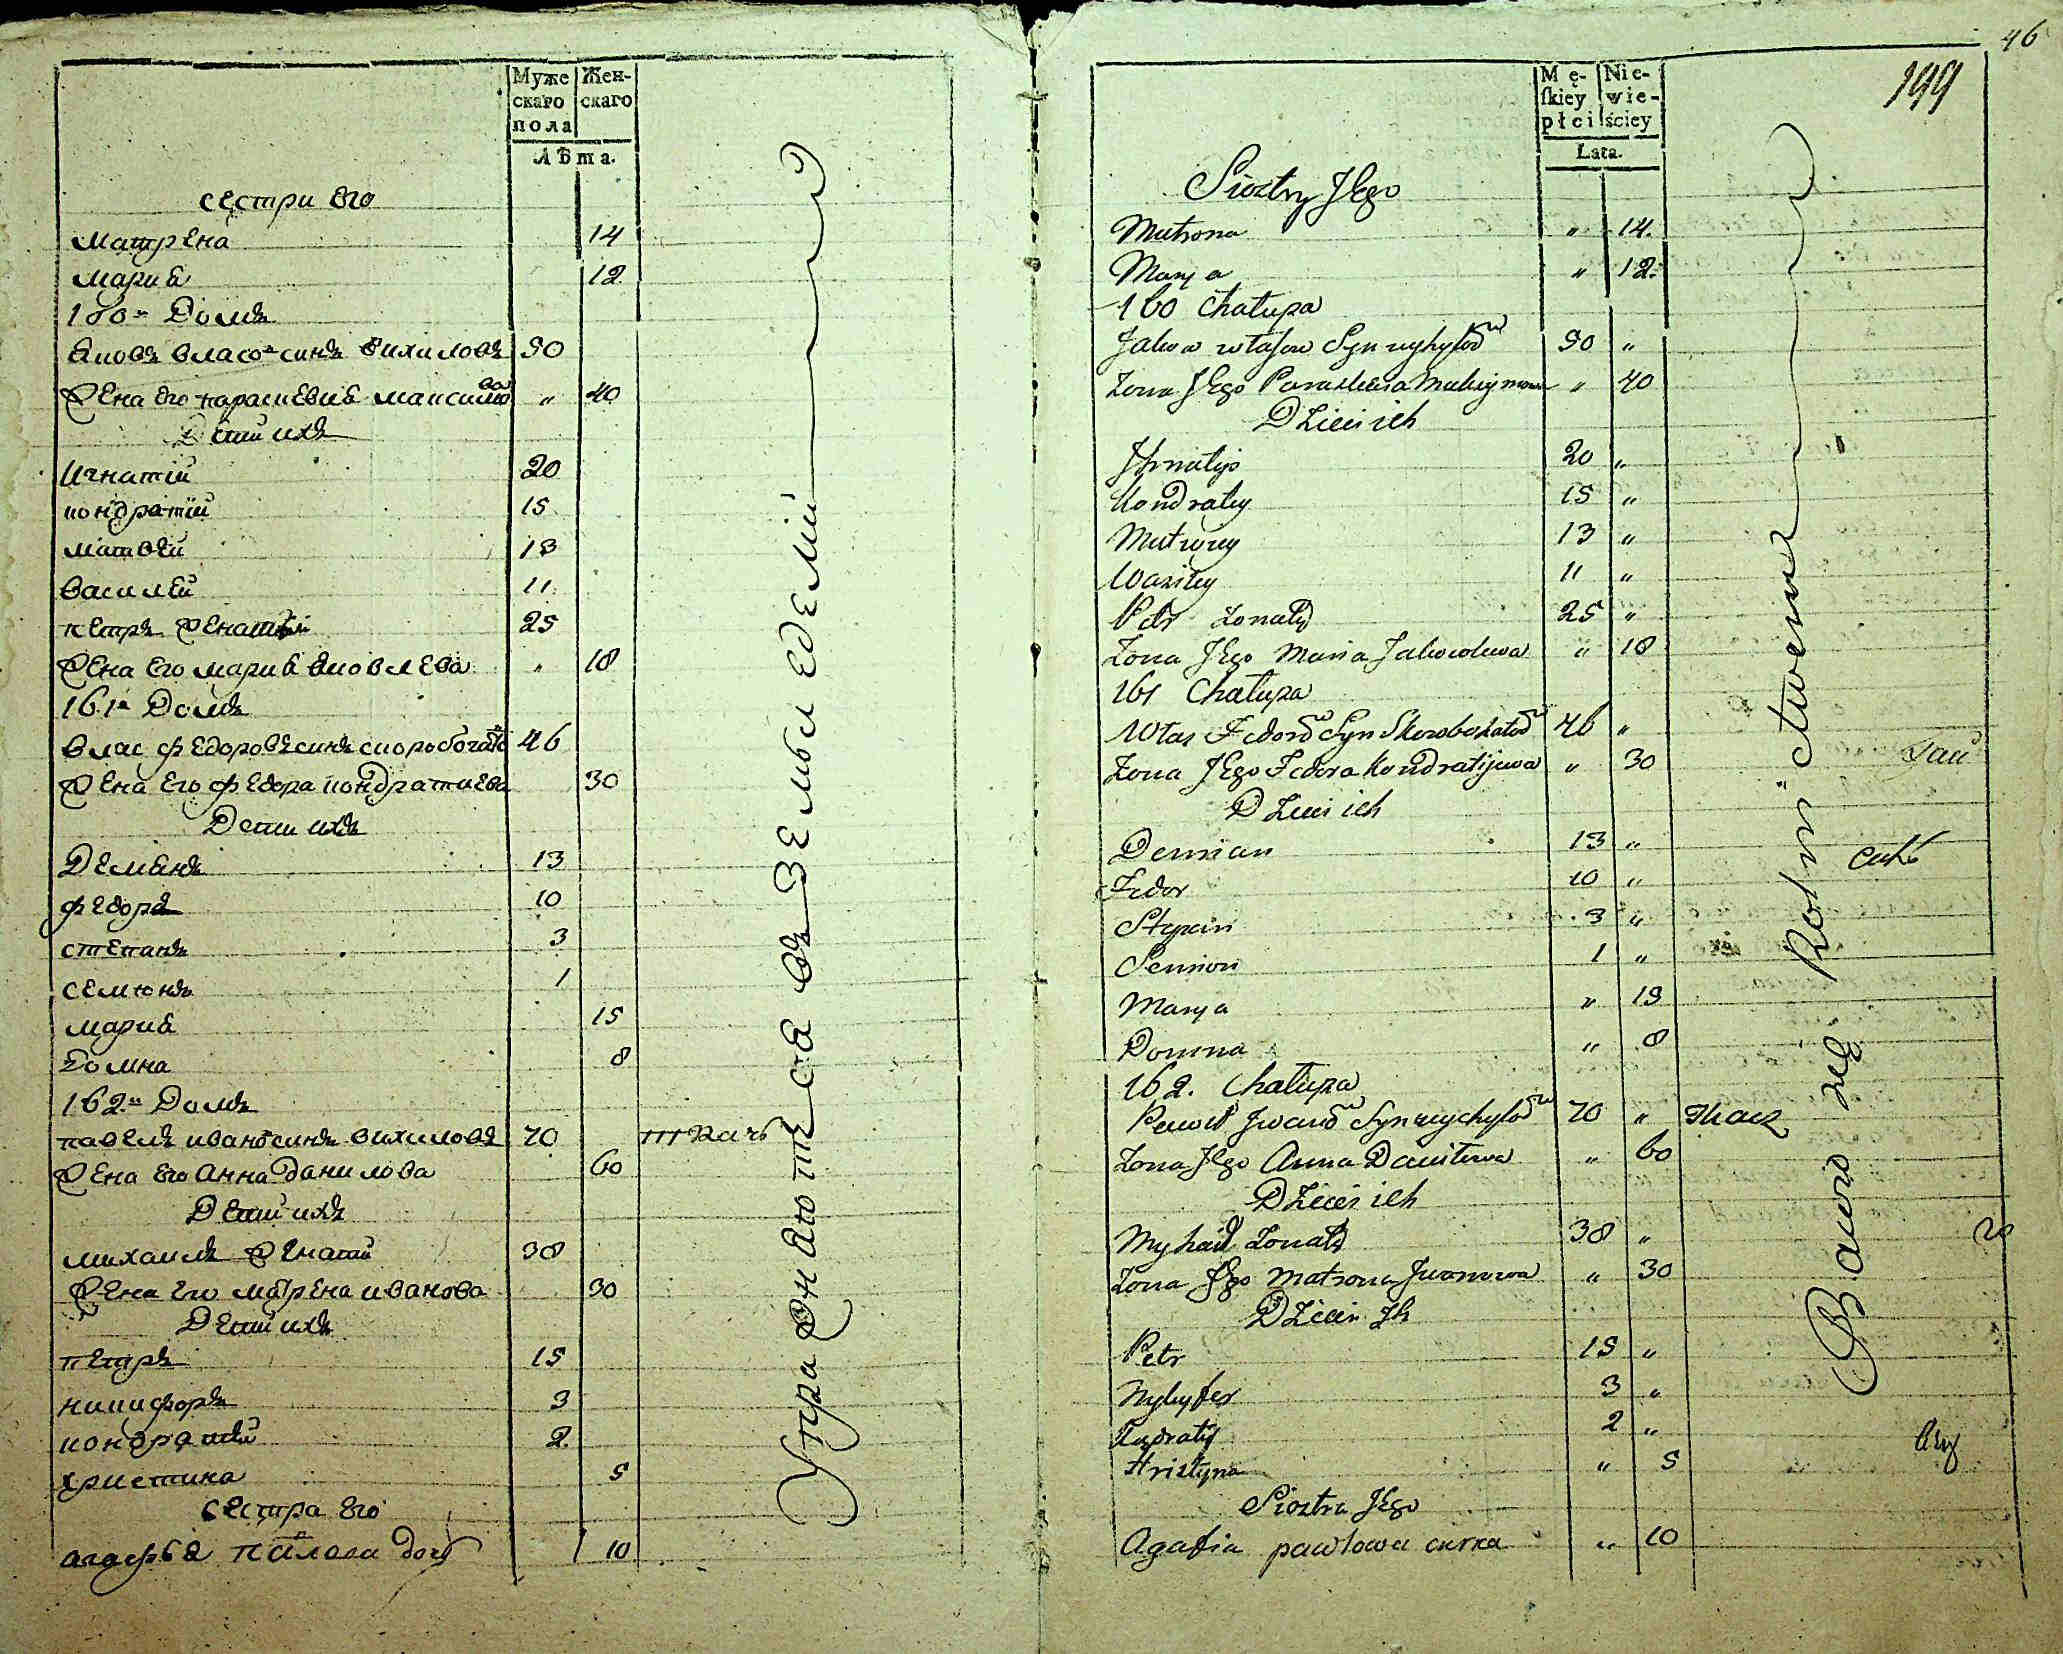 Муже Жен-
скаго скаго
пола
Лѣта.
сестри Его
Матрена 14
Мария 12
160й Домъ
Яковъ Власовъ синъ Вихиловъ 50
Жена Его параскевия Максимова „ 40
Дети ихъ
Игнатій 20
кондратій 15
Матвѣй 13
Василей 11
петръ Женатій 25
Жена Его мария Яковлева „ 18
161й Домъ
Влас федоровъ синъ скоробогато 46
Жена Его федора кондратиева 30
Дети ихъ
Демянъ 13
федоръ 10
степанъ 3
семюнъ 1
мария 15
домна 8
162й Домъ
павелъ ивановъ синъ вихиловъ 70 ткачь
Жена Его Анна данилова 60
Дети ихъ
михаилъ Женатій 38
Жена Его матрена иванова 30
Дети ихъ
петръ 15
никифоръ 3
кондратій 2
христина 5
сестра Его
агафья павлова дочь 10
Упражняютеся въ Земледелій
46
199
Mę- Nie-
skiey wie-
płci ściey
Lata.
Siostry Jego
Matrona „ 14.
Marya „ 12.
160 Chałupa
Jakow własow Syn wyhyłow 50 „
Zona Jego Paraskewia Maksymowa „ 40
Dzieci ich
Ihnatij 20 „
Kondratey 15 „
Matwiey 13 „
Wasiley 11 „
Petr Zonaty 25 „
Zona Jego Maria Jakowlewa „ 18
161 Chałupa
Włas Fedorow Syn Skorobohatow 46 „
Zona Jego Fedora Kondratijewa „ 30
Dzieci ich
Demian 13 „
Fedor 10 „
Stepan 3 „
Semion 1 „
Marya „ 15
Domna „ 8
162. Chałupa
Paweł Jwanow Syn wychyłow 70 „ Tkacz
Zona Jego Anna Daniłowa „ 60
Dzieci ich
Myhaił Zonaty 38 „
Zona Jego Matrona Jwanowa „ 30
Dzieci Jh
Petr 15 „
Nykyfer 3 „
Kondraty 2 „
Hristyna „ 5
Siostra Jego
Agafia pawłowa curka „ 10
Bawio się Rolnictwem